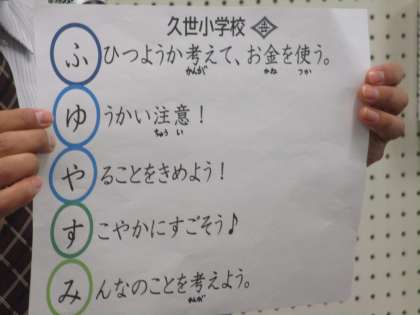 久世小学校
ふひつようか考えて、お金を使う。
かんが かね つか
ゆうかい注意！
ちゅう い
やることをきめよう！
すこやかにすごそう♪
みんなのことを考えよう。
かんが